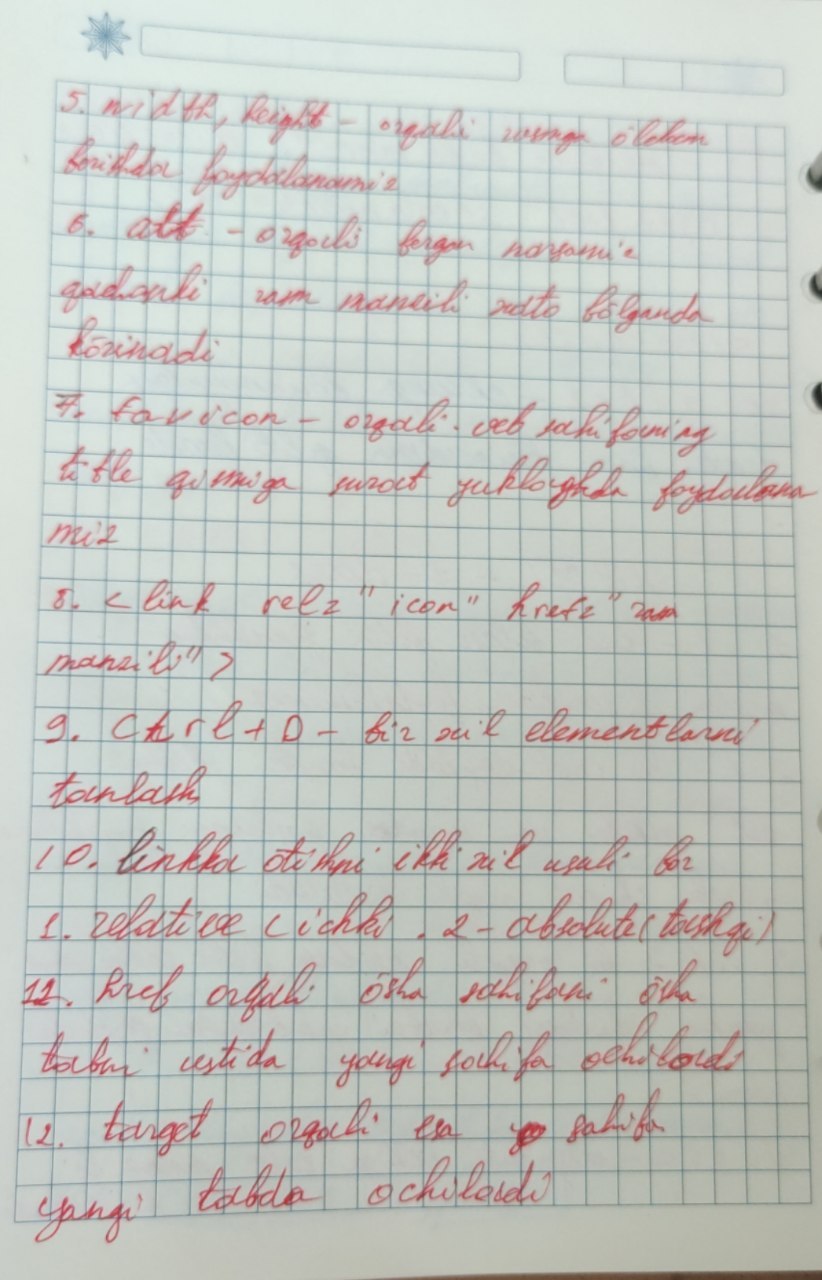 5. width, height - orqali rasmga ölchem
berishda foydalanamiz
6. att - orqali bergan narsamiz
qachonki rasm manzili xato bölganda
körinadi
7. favicon - orqali veb sahifaning
title qismiga surat yuklashda foydalana
miz
8. < link rel= "icon" href= "rasm
manzili" >
9. Ctrl + D - bir xil elementlarni
tanlash
10. linkka ötishni ikki xil usuli bor
1. relative (ichki . 2 - absolute (tashqi)
11. href orqali ösha sahifani ösha
tabni ustida yangi sahifa ochiladi
12. target orqali esa sahifa
yangi tabda ochiladi